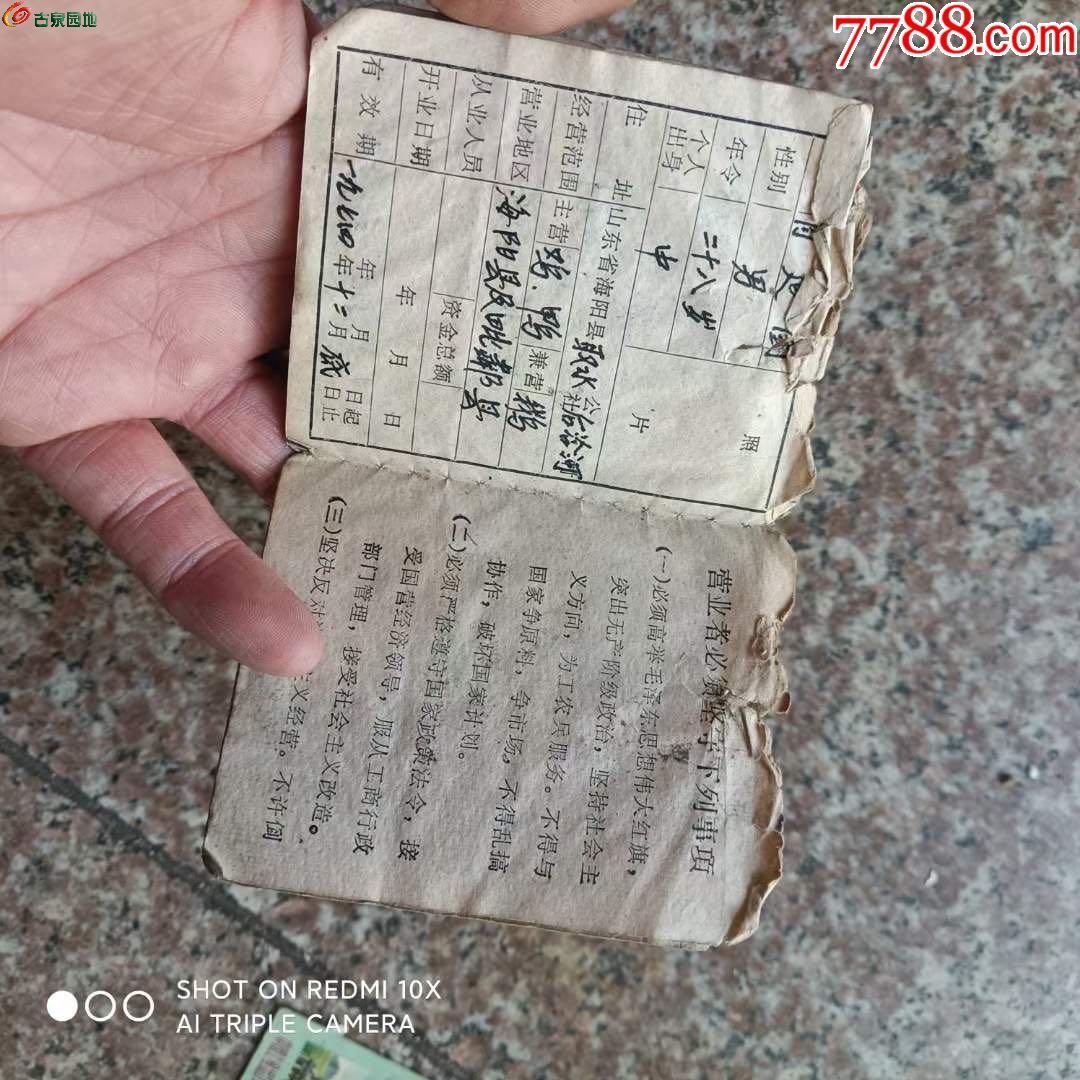 古泉园地
7788.com
性别 男
年令 二十八岁
个人出身 中
照片
住址 山东省海阳县 取水 公社 台洽河
经营范围 主营 鸡.鸭 兼营 鹅
营业地区 海阳县及毗邻县
从业人员 资金总额
开业日期 年 月 日
有效期 年 月 日起
一九七四年十二月底日止
营业者必须坚守下列事项
(一)必须高举毛泽东思想伟大红旗,
突出无产阶级政治,坚持社会主
义方向,为工农兵服务。不得与
国家争原料,争市场,不得乱搞
协作,破坏国家计划。
(二)必须严格遵守国家政策法令,接
受国营经济领导,服从工商行政
部门管理,接受社会主义改造。
(三)坚决反对 主义经营。不许倒
SHOT ON REDMI 10X
AI TRIPLE CAMERA